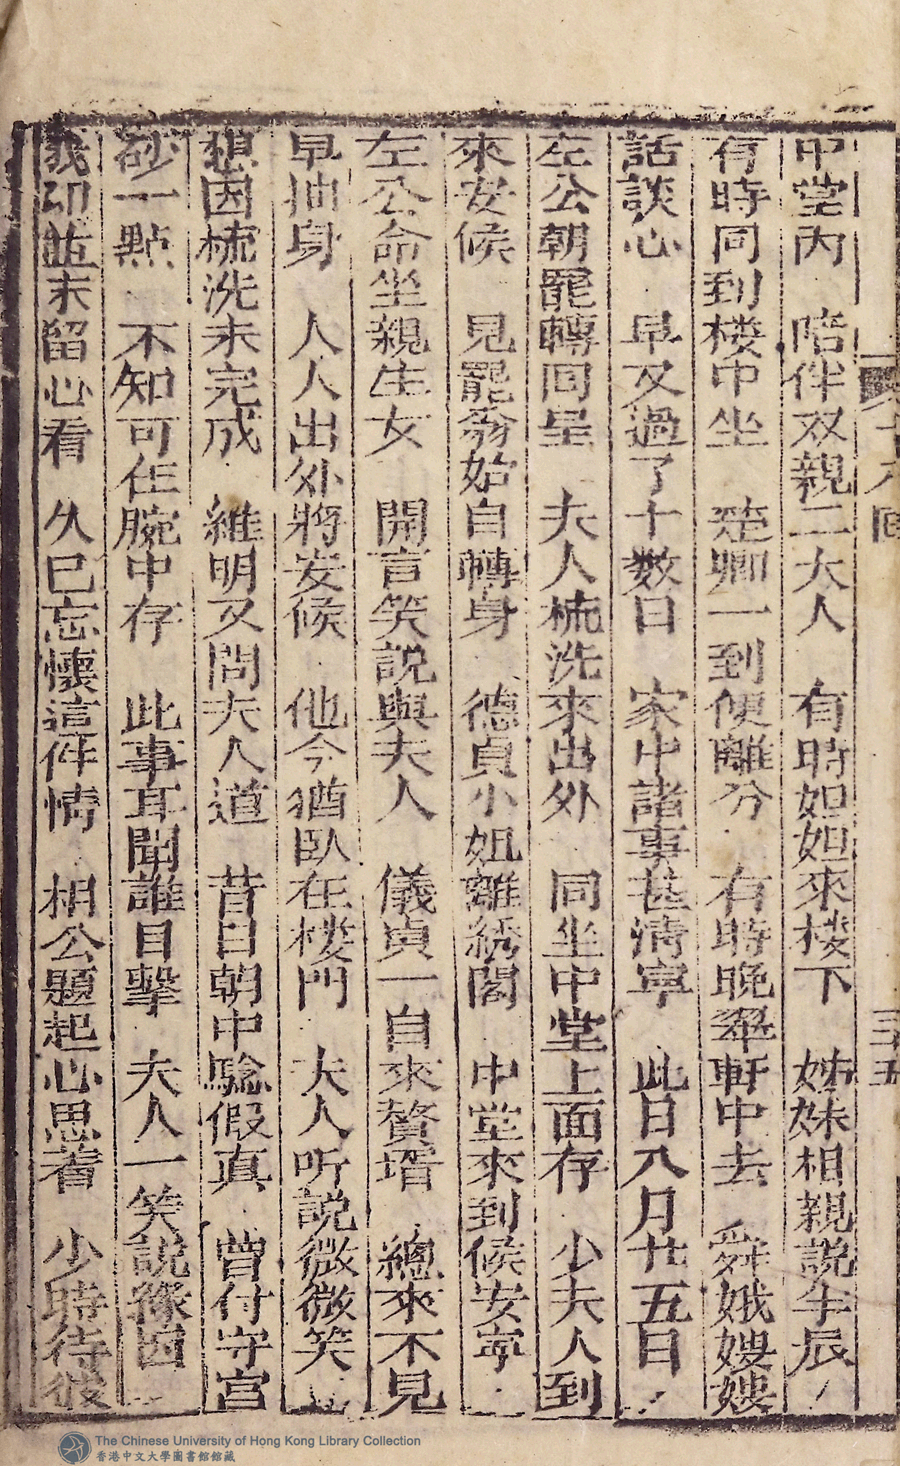 十八回
三十五
中堂內　陪伴双親二大人　有時妲妲來楼下　姊妹相親說年辰
有時同到楼中坐　楚卿一到便離分　有時晚翠軒中去　舜娥嫂嫂
話談心　早又過了十数日　家中諸事甚清寧　此日八月廿五日
左公朝罷轉回呈　夫人梳洗來出外　同坐中堂上面存　少夫人到
來安候　見罷翁姑自轉身　德貞小姐離綉閣　中堂來到候安寧
左公命坐親生女　開言笑說與夫人　儀貞一自來贅壻　總來不見
早抽身　人人出外將安候　他今猶臥在楼門　夫人听說微微笑
想因梳洗未完成　維明又問夫人道　昔日朝中騐假真　曾付守宮
砂一點　不知可在腕中存　此事耳聞誰目擊　夫人一笑說緣因
我却並未留心看　久已忘懷這件情　相公題起心思着　少時待彼
The Chinese University of Hong Kong Library Collection
香港中文大學圖書館館藏